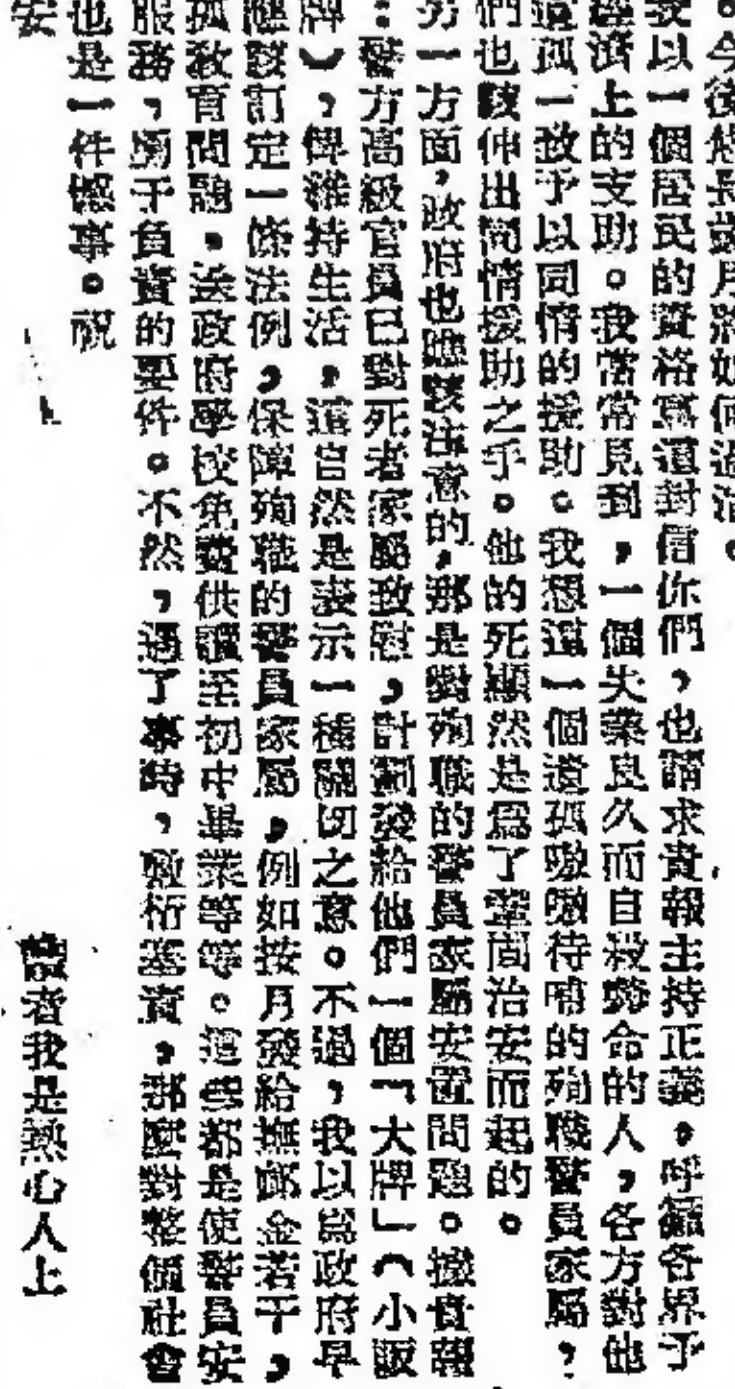 。今後悠長歲月將如何過活。
我以一個居民的資格寫這封信你們，也請求貴報主持正義，呼籲各界予
經濟上的支助。我常常見到，一個失業良久而自殺斃命的人，各方對他
遺孤一致予以同情的援助。我想這一個遺孤嗷嗷待哺的殉職警員家屬，
們也該伸出同情援助之手。他的死顯然是爲了鞏固治安而起的。
另一方面，政府也應該注意的，那是對殉職的警員家屬安置問題。據貴報
：警方高級官員已對死者家屬致慰，計劃發給他們一個「大牌」（小販
牌），俾維持生活，這固然是表示一種關切之意。不過，我以爲政府早
應該訂定一條法例，保障殉職的警員家屬，例如按月發給撫卹金若干，
孤敎育問題，送政府學校免費供讀至初中畢業等等。這些都是使警員安
服務，勇于負責的要件。不然，遇了事時，敷衍塞責，那麼對整個社會
也是一件憾事。祝
安
讀者我是熱心人上